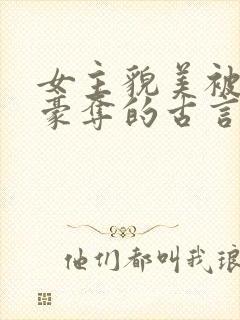 女主貌美被
豪夺的古言
他们都叫我琅